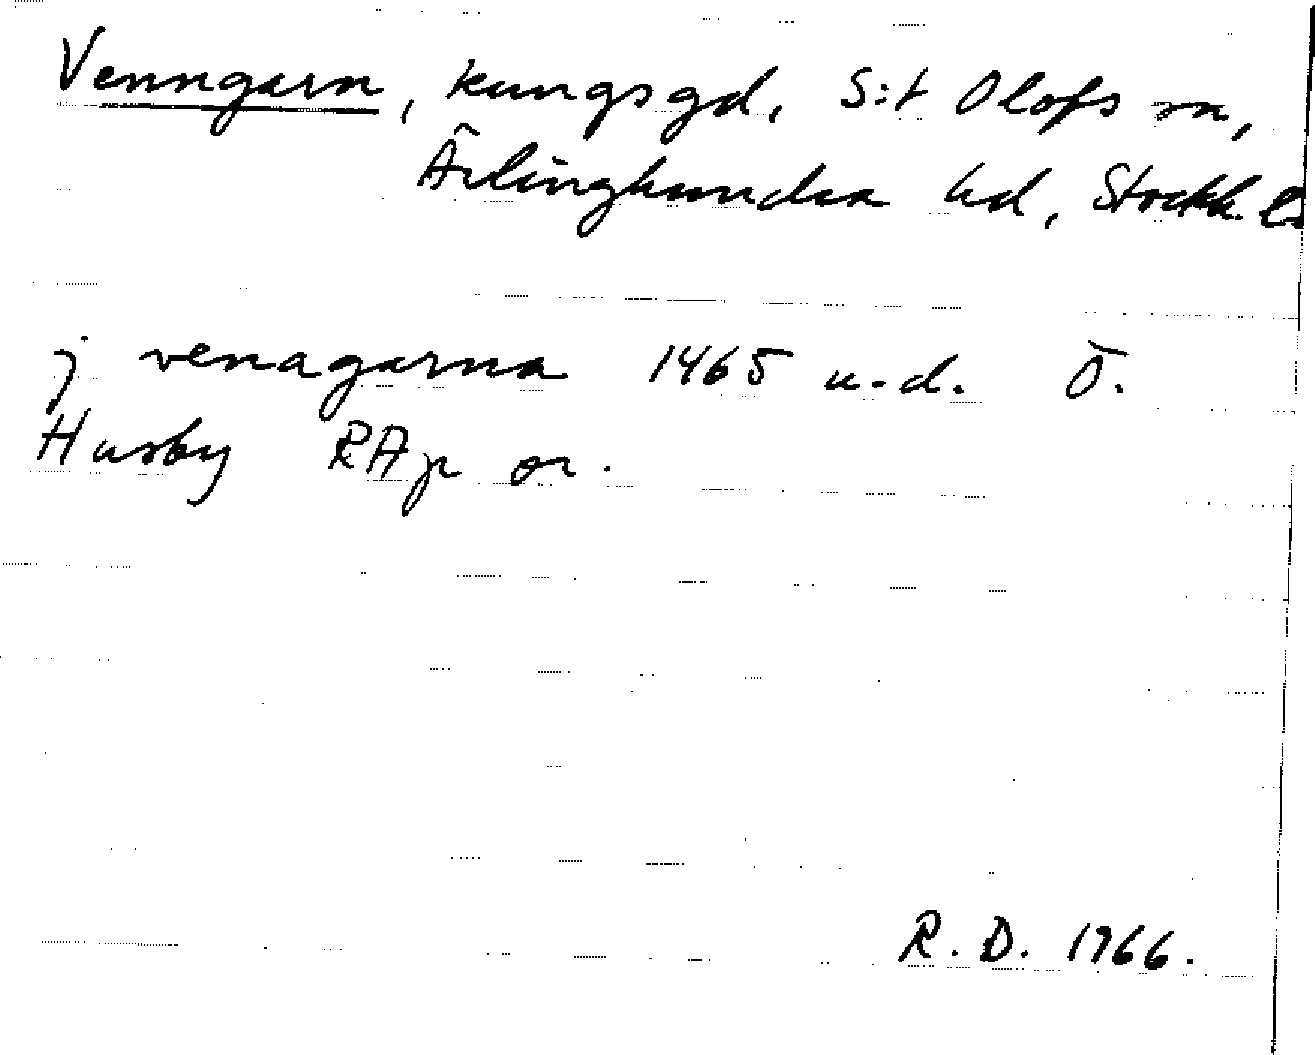 Venngarn, kungsgd, S:t Olofs sn,
Ärlinghundra hd, Stockh. l.
j venagarna 1465 u.d. Ö.
Husby RAp or.
R. D. 1966.